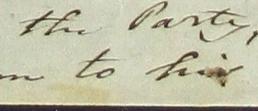 the Party,
to his